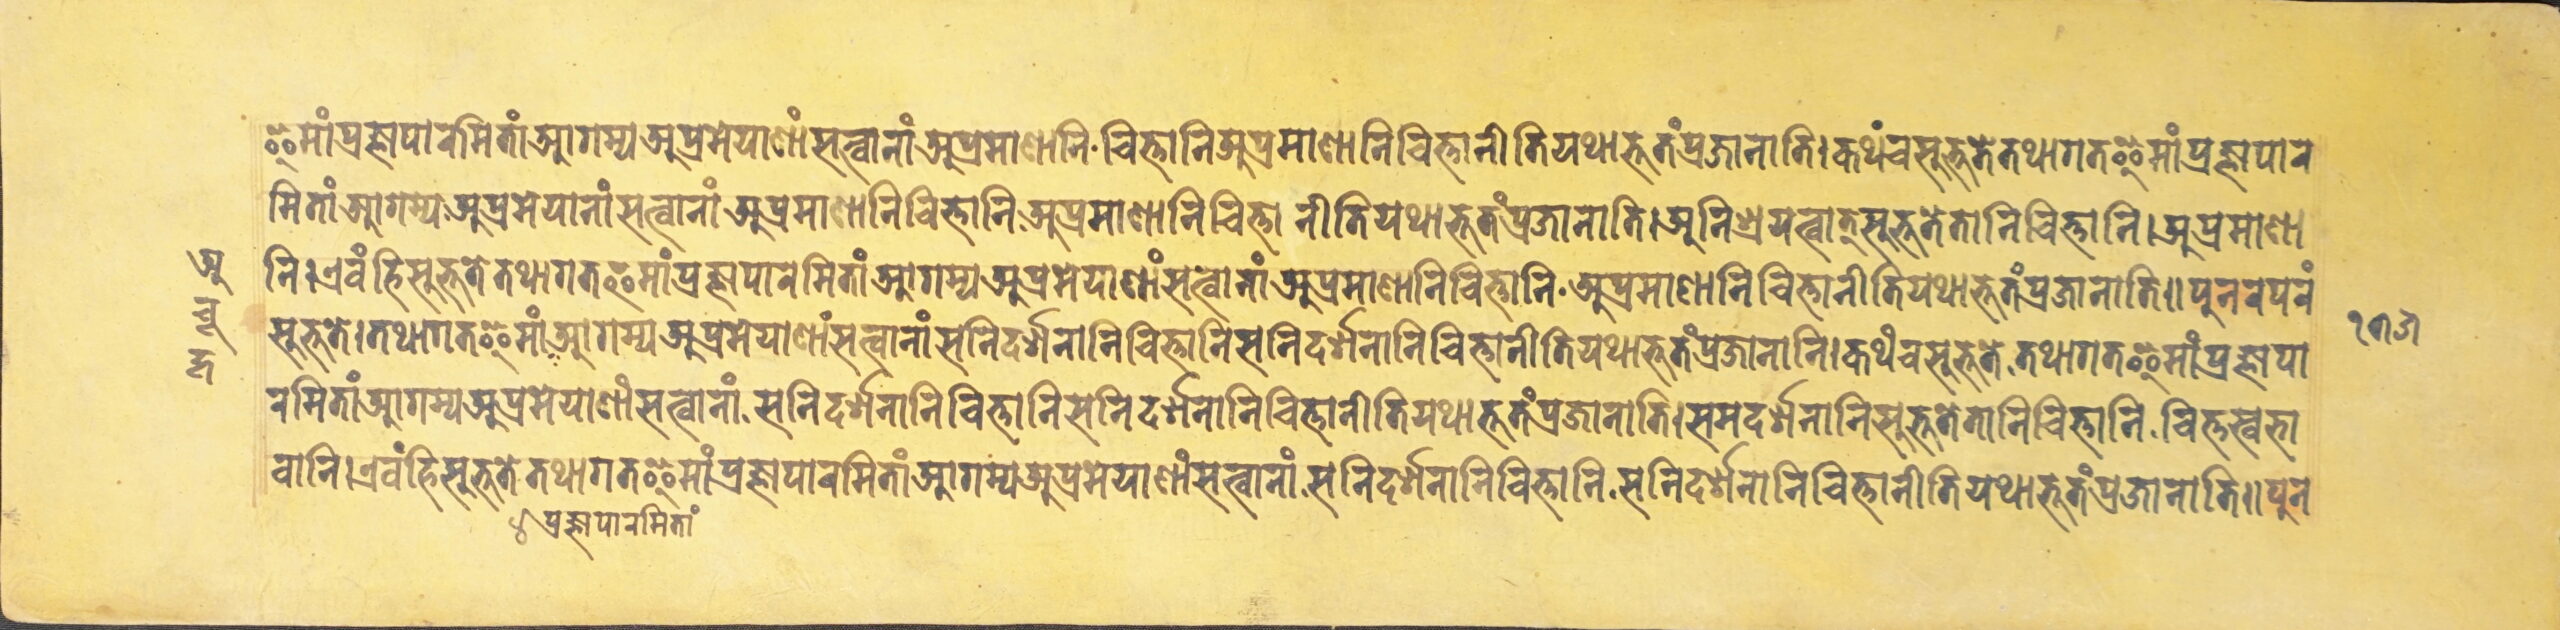 इमां प्रज्ञापारमितां आगम्य अप्रमेयाणां सत्त्वानां अप्रमाणानि. चित्तानि अप्रमाणानि चित्तानीति यथाभूतं प्रजानाति। कथं च सुभूते तथागत इमां प्रज्ञापार
मितां आगम्य. अप्रमेयानां सत्त्वानां अप्रमाणानि चित्तानि. अप्रमाणानि चित्ता नीति यथाभूतं प्रजानाति। अनिश्रयत्वात् सुभूते तानि चित्तानि। अप्रमाणा
नि। एवं हि सुभूते तथागत इमां प्रज्ञापारमितां आगम्य अप्रमेयाणां सत्त्वानां अप्रमाणानि चित्तानि. अप्रमाणानि चित्तानीति यथाभूतं प्रजानाति॥ पुनरपरं
सुभूते। तथागत इमां आगम्य अप्रमेयाणां सत्त्वानां सनिदर्शनानि चित्तानि सनिदर्शनानि चित्तानीति यथाभूतं प्रजानानि। कथं च सुभूते. तथागत इमां प्रज्ञापा
रमितां आगम्य अप्रमेयाणां सत्त्वानां. सनिदर्शनानि चित्तानि सनिदर्शनानि चित्तानीति यथाभूतं प्रजानाति। समदर्शनानि सुभूते तानि चित्तानि. चित्तस्वभा
वानि। एवं हि सुभूते तथागत इमां प्रज्ञापारमितां आगम्य अप्रमेयाणां सत्त्वानां. सनिदर्शनानि चित्तानि. सनिदर्शनानि चित्तानीति यथाभूतं प्रजानाति॥ पुन
४ प्रज्ञापारमितां